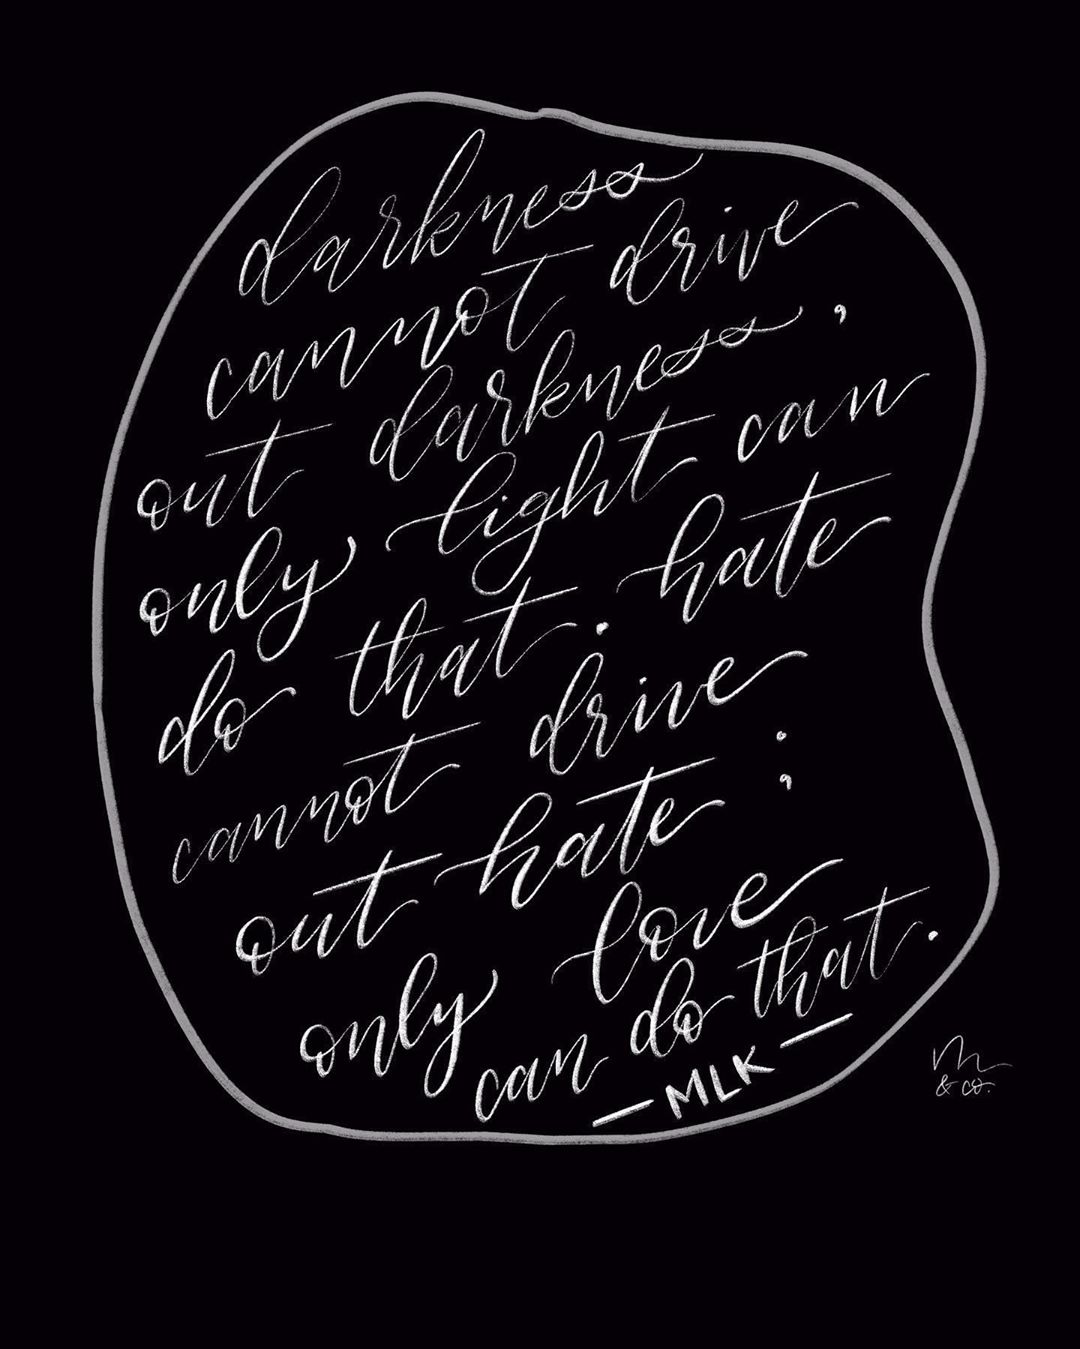 darkness
cannot drive
out darkness,
only light can
do that. hate
cannot drive
out hate;
only love
can do that.
— MLK —
m
& co.